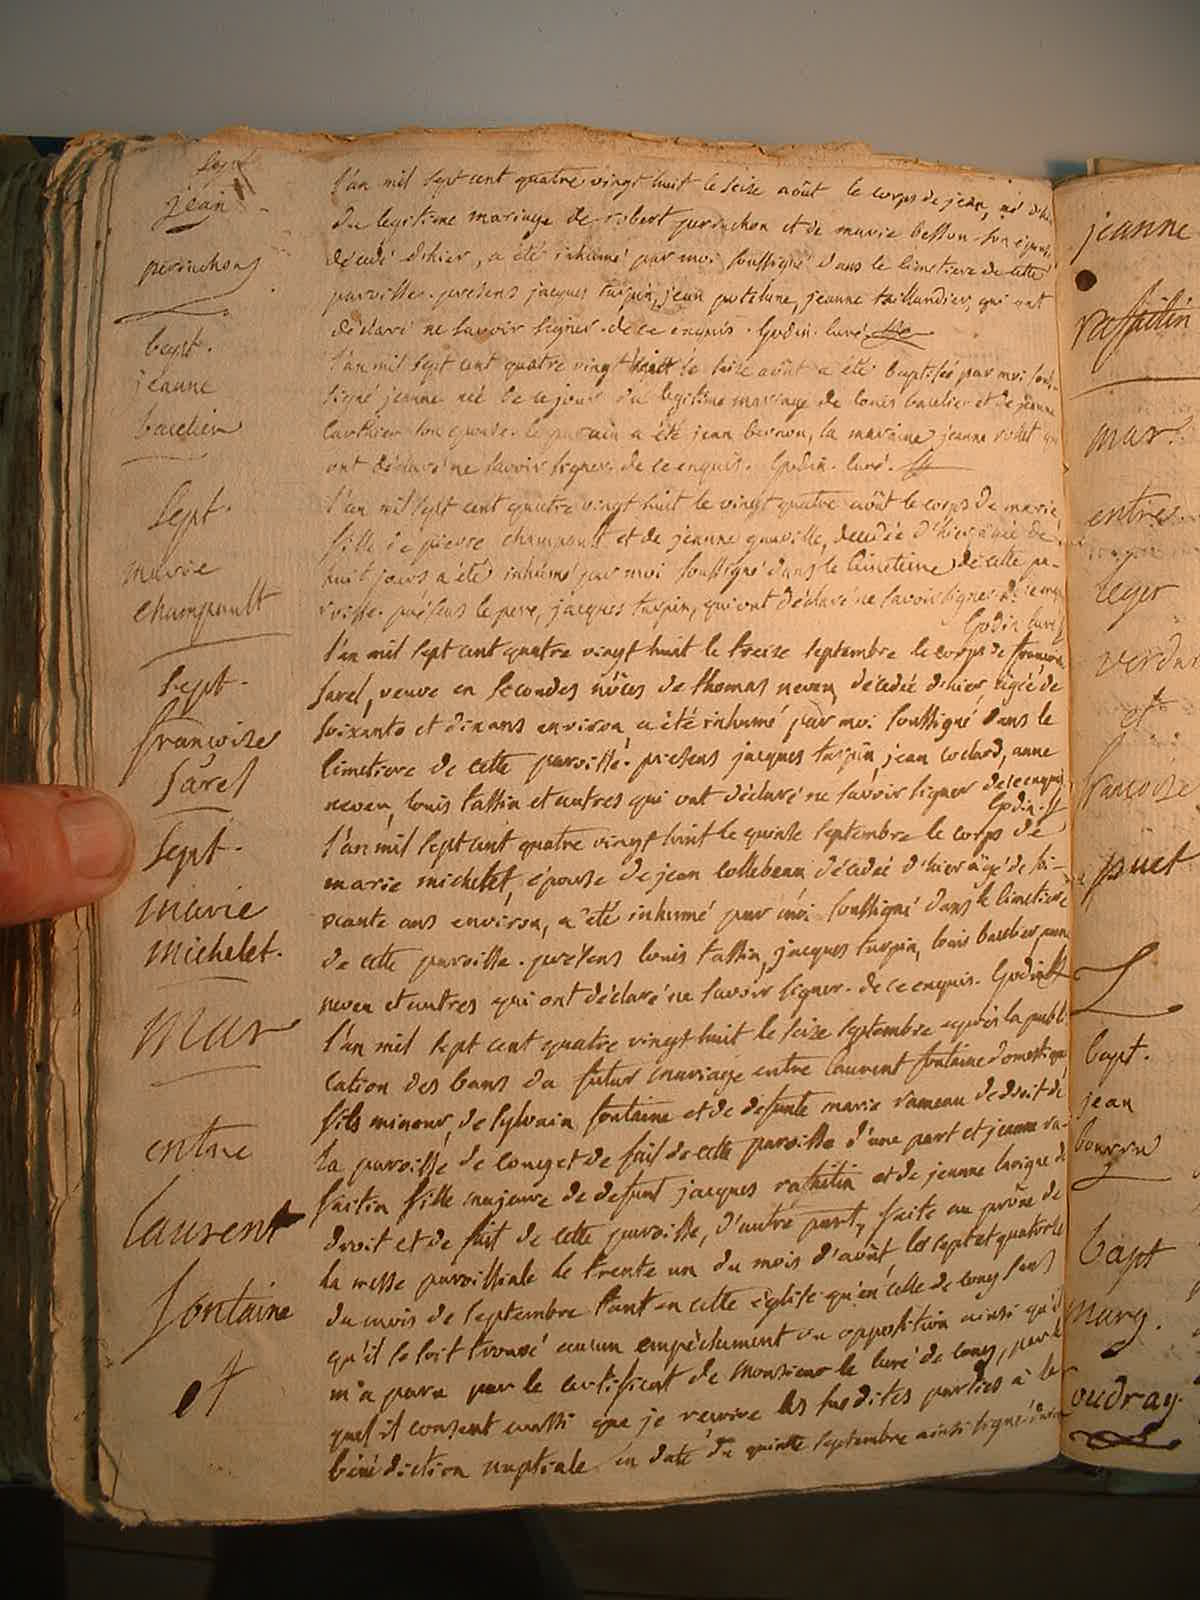 Sept
jean
perruchon
l'an mil sept cent quatre vingt huit le seize août le corps de jean, né d'hier
du legitime mariage de robert perruchon et de marie besson son épouse
décédé d'hier, a été inhumé par moi soussigné dans le cimetiere de cette
paroisse. présens jacques turpin, jean potelune, jeanne taillandier, qui ont
déclaré ne savoir signer. de ce enquis. Godin. curé
bapt.
jeanne
baulier
l'an mil sept cent quatre vingt huit le seize août a été baptisée par moi sous-
signé jeanne née de ce jour du legitime mariage de louis baulier et de jeanne
gauthier son épouse. le parain a été jean bernon, la maraine jeanne rollet qui
ont déclaré ne savoir signer. de ce enquis. Godin. curé.
Sept.
marie
champault
l'an mil sept cent quatre vingt huit le vingt quatre août le corps de marie
fille de pierre champault et de jeanne gauville, decedée d'hier agée de
huit jours a été inhumé par moi soussigné dans le cimetiere de cette pa-
roisse. présens le pere, jacques turpin, qui ont déclaré ne savoir signer. de ce enquis
Godin curé
Sept.
françoise
sarel
l'an mil sept cent quatre vingt huit le treize septembre le corps de françoise
sarel, veuve en secondes nôces de thomas neveu, décédée d'hier, agée de
soixante et dix ans environ a été inhumé par moi soussigné dans le
cimetiere de cette paroisse. présens jacques turpin, jean coclard, anne
neveu, louis tassin et autres qui ont déclaré ne savoir signer de ce enquis
Godin.
Sept.
marie
michelet.
l'an mil sept cent quatre vingt huit le quinze septembre le corps de
marie michelet, épouse de jean collebeau décédée d'hier âgé de soi-
xante ans environ, a été inhumé par moi soussigné dans le cimetiere
de cette paroisse. présens louis tassin, jacques turpin, louis baulier, anne
neveu et autres qui ont déclaré ne savoir signer. de ce enquis. Godin
Mar
entre
laurent
fontaine
et
l'an mil sept cent quatre vingt huit le seize septembre après la publi-
cation des bans du futur mariage entre laurent fontaine domestique
fils mineur de sylvain fontaine et de defunte marie rameau de droit de
la paroisse de et de fait de cette paroisse d'une part et jeanne ra-
faitin fille majeure de defunt jacques rafaitin et de jeanne lavigne de
droit et de fait de cette paroisse, d'autre part, faite au prône de
la messe paroissiale le trente un du mois d'août, les sept et quatorze
du mois de septembre tant en cette église qu'en celle de sans
qu'il se soit trouvé aucun empêchement ou opposition ainsi qu'il
m'a paru par le certificat de monsieur le curé de par le
quel il consent aussi que je reçoive les susdites parties à la
bénédiction nuptiale en date du quinze septembre ainsi signé
jeanne
rassaitin
mar.
entre
leger
et
françoise
puet
bapt.
jean
bourru
bapt
marg.
oudray.